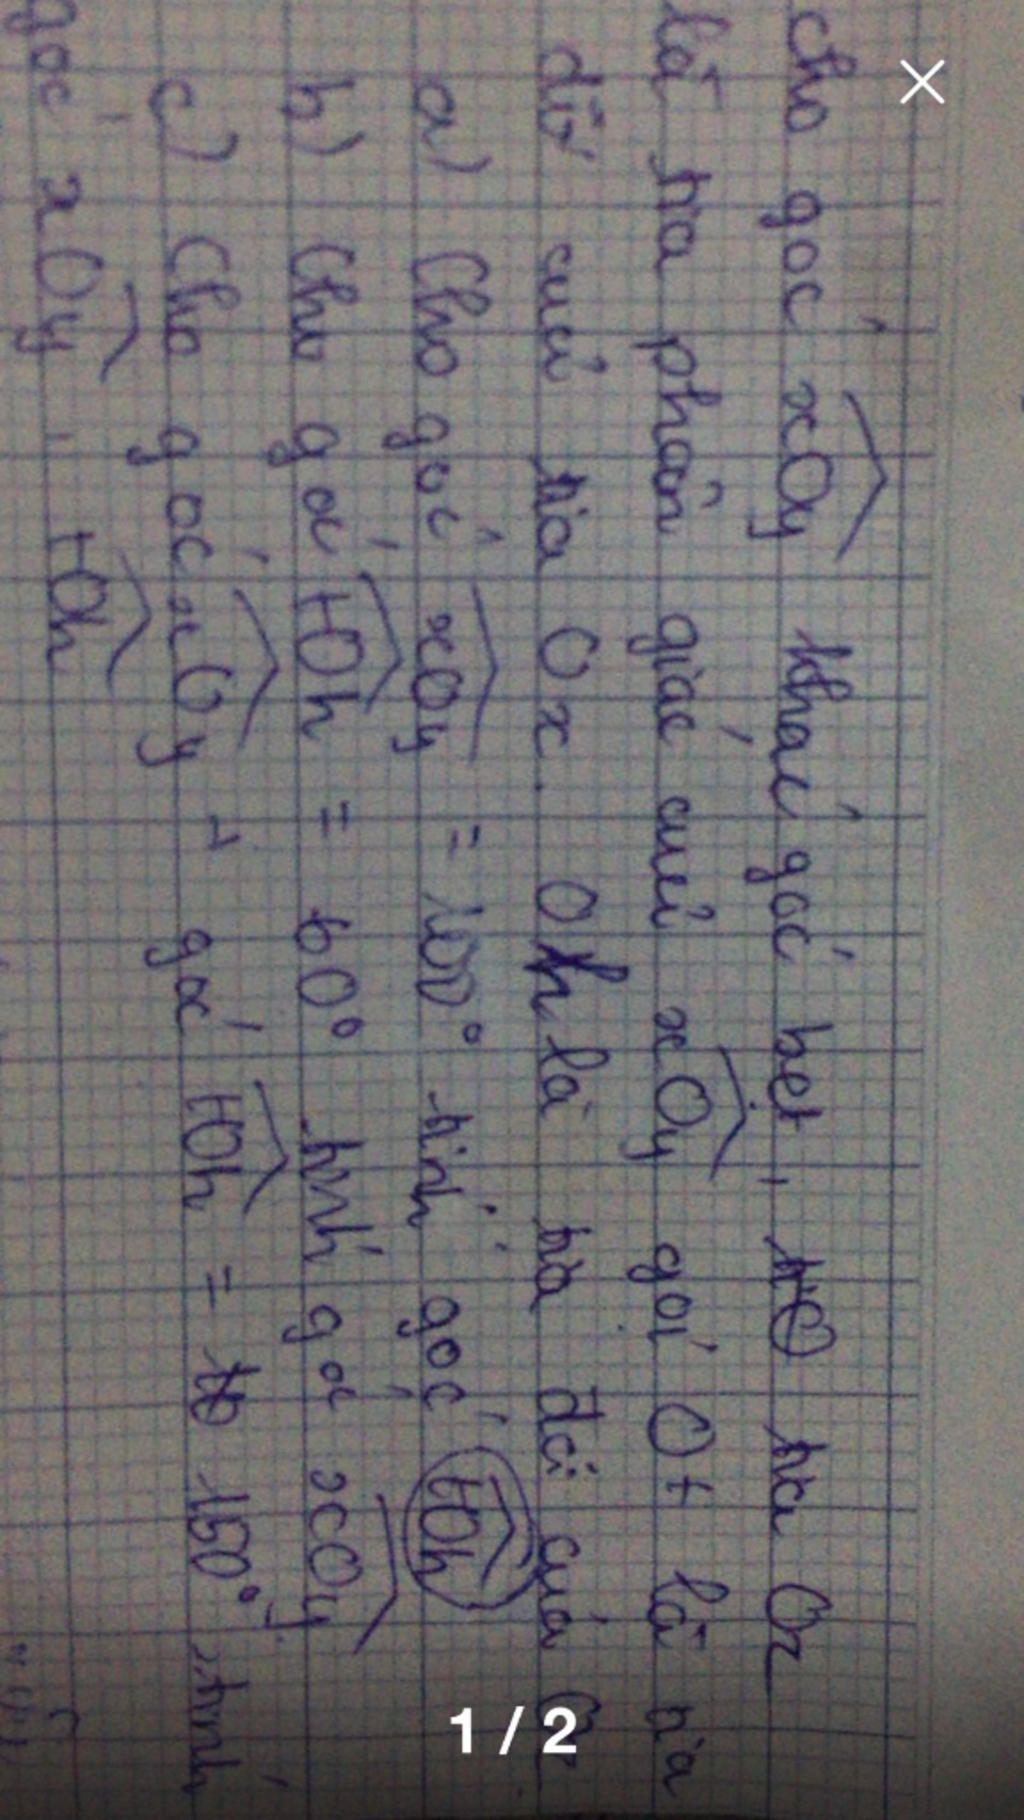 cho góc xOy khác góc bẹt, tia Oz
là tia phân giác của xOy gọi Ot là tia
đối của tia Ox. Oh là tia đối của
a) Cho góc xOy = 100° tính góc tOh
b) Cho góc tOh = 60° tính góc xOy
c) Cho góc xOy + góc tOh = 150°. tính
góc xOy, tOh
1 / 2